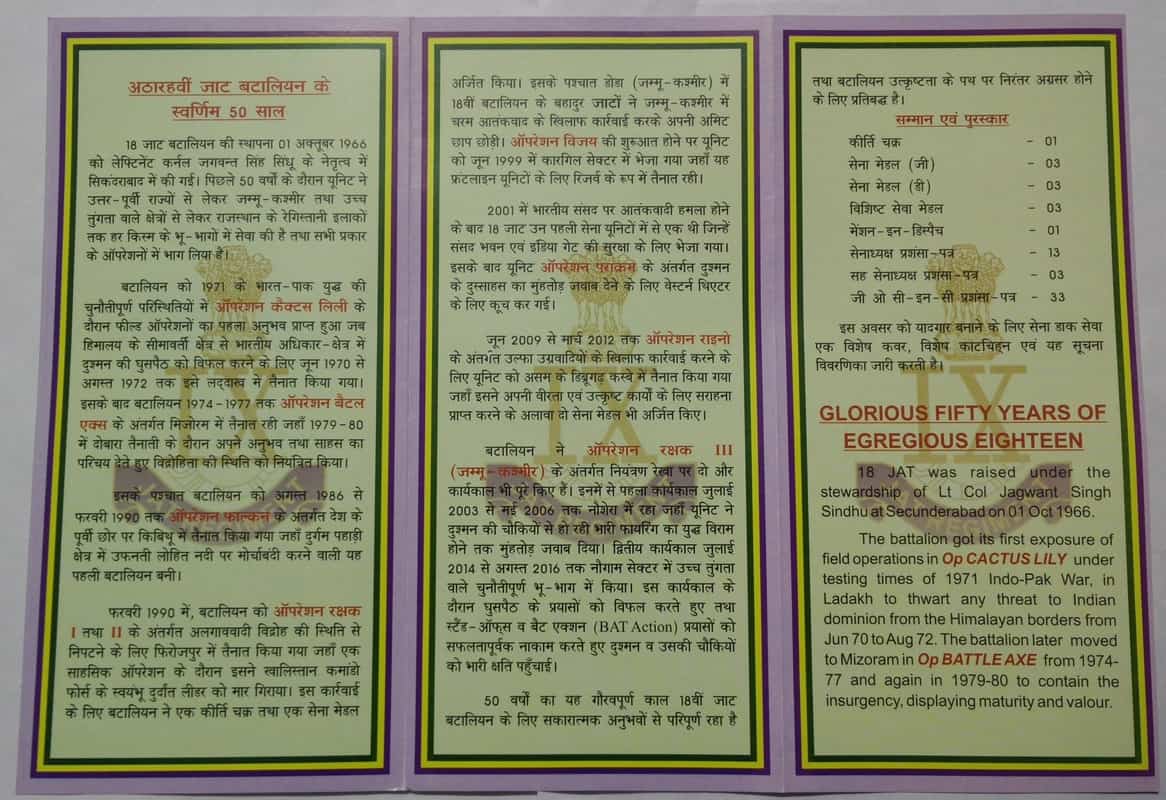 अठारहवीं जाट बटालियन के
स्वर्णिम 50 साल
18 जाट बटालियन की स्थापना 01 अक्तूबर 1966
को लेफ्टिनेंट कर्नल जगवन्त सिंह सिंधू के नेतृत्व में
सिकंदराबाद में की गई। पिछले 50 वर्षों के दौरान यूनिट ने
उत्तर-पूर्वी राज्यों से लेकर जम्मू-कश्मीर तथा उच्च
तुंगता वाले क्षेत्रों से लेकर राजस्थान के रेगिस्तानी इलाकों
तक हर किस्म के भू-भागों में सेवा की है तथा सभी प्रकार
के ऑपरेशनों में भाग लिया है।
बटालियन को 1971 के भारत-पाक युद्ध की
चुनौतीपूर्ण परिस्थितियों में ऑपरेशन कैक्टस लिली के
दौरान फील्ड ऑपरेशनों का पहला अनुभव प्राप्त हुआ जब
हिमालय के सीमावर्ती क्षेत्र से भारतीय अधिकार-क्षेत्र में
दुश्मन की घुसपैठ को विफल करने के लिए जून 1970 से
अगस्त 1972 तक इसे लद्दाख में तैनात किया गया।
इसके बाद बटालियन 1974-1977 तक ऑपरेशन बैटल
एक्स के अंतर्गत मिजोरम में तैनात रही जहाँ 1979-80
में दोबारा तैनाती के दौरान अपने अनुभव तथा साहस का
परिचय देते हुए विद्रोहिता की स्थिति को नियंत्रित किया।
इसके पश्चात बटालियन को अगस्त 1986 से
फरवरी 1990 तक ऑपरेशन फाल्कन के अंतर्गत देश के
पूर्वी छोर पर किबिथू में तैनात किया गया जहाँ दुर्गम पहाड़ी
क्षेत्र में उफनती लोहित नदी पर मोर्चाबंदी करने वाली यह
पहली बटालियन बनी।
फरवरी 1990 में, बटालियन को ऑपरेशन रक्षक
I तथा II के अंतर्गत अलगाववादी विद्रोह की स्थिति से
निपटने के लिए फिरोजपुर में तैनात किया गया जहाँ एक
साहसिक ऑपरेशन के दौरान इसने खालिस्तान कमांडो
फोर्स के स्वयंभू दुर्दांत लीडर को मार गिराया। इस कार्रवाई
के लिए बटालियन ने एक कीर्ति चक्र तथा एक सेना मेडल
अर्जित किया। इसके पश्चात डोडा (जम्मू-कश्मीर) में
18वीं बटालियन के बहादुर जाटों ने जम्मू-कश्मीर में
चरम आतंकवाद के खिलाफ कार्रवाई करके अपनी अमिट
छाप छोड़ी। ऑपरेशन विजय की शुरुआत होने पर यूनिट
को जून 1999 में कारगिल सेक्टर में भेजा गया जहाँ यह
फ्रंटलाइन यूनिटों के लिए रिजर्व के रूप में तैनात रही।
2001 में भारतीय संसद पर आतंकवादी हमला होने
के बाद 18 जाट उन पहली सेना यूनिटों में से एक थी जिन्हें
संसद भवन एवं इंडिया गेट की सुरक्षा के लिए भेजा गया।
इसके बाद यूनिट ऑपरेशन पराक्रम के अंतर्गत दुश्मन
के दुस्साहस का मुंहतोड़ जवाब देने के लिए वेस्टर्न थिएटर
के लिए कूच कर गई।
जून 2009 से मार्च 2012 तक ऑपरेशन राइनो
के अंतर्गत उल्फा उग्रवादियों के खिलाफ कार्रवाई करने के
लिए यूनिट को असम के डिब्रूगढ़ कस्बे में तैनात किया गया
जहाँ इसने अपनी वीरता एवं उत्कृष्ट कार्यों के लिए सराहना
प्राप्त करने के अलावा दो सेना मेडल भी अर्जित किए।
बटालियन ने ऑपरेशन रक्षक III
(जम्मू-कश्मीर) के अंतर्गत नियंत्रण रेखा पर दो और
कार्यकाल भी पूरे किए हैं। इनमें से पहला कार्यकाल जुलाई
2003 से मई 2006 तक नौशेरा में रहा जहाँ यूनिट ने
दुश्मन की चौकियों से हो रही भारी फायरिंग का युद्ध विराम
होने तक मुंहतोड़ जवाब दिया। द्वितीय कार्यकाल जुलाई
2014 से अगस्त 2016 तक नौगाम सेक्टर में उच्च तुंगता
वाले चुनौतीपूर्ण भू-भाग में किया। इस कार्यकाल के
दौरान घुसपैठ के प्रयासों को विफल करते हुए तथा
स्टैंड-ऑफ्स व बैट एक्शन (BAT Action) प्रयासों को
सफलतापूर्वक नाकाम करते हुए दुश्मन व उसकी चौकियों
को भारी क्षति पहुँचाई।
50 वर्षों का यह गौरवपूर्ण काल 18वीं जाट
बटालियन के लिए सकारात्मक अनुभवों से परिपूर्ण रहा है
तथा बटालियन उत्कृष्टता के पथ पर निरंतर अग्रसर होने
के लिए प्रतिबद्ध है।
सम्मान एवं पुरस्कार
कीर्ति चक्र - 01
सेना मेडल (जी) - 03
सेना मेडल (डी) - 03
विशिष्ट सेवा मेडल - 03
मेंशन-इन-डिस्पैच - 01
सेनाध्यक्ष प्रशंसा-पत्र - 13
सह सेनाध्यक्ष प्रशंसा-पत्र - 03
जी ओ सी-इन-सी प्रशंसा-पत्र - 33
इस अवसर को यादगार बनाने के लिए सेना डाक सेवा
एक विशेष कवर, विशेष काटचिह्न एवं यह सूचना
विवरणिका जारी करती है।
GLORIOUS FIFTY YEARS OF
EGREGIOUS EIGHTEEN
18 JAT was raised under the
stewardship of Lt Col Jagwant Singh
Sindhu at Secunderabad on 01 Oct 1966.
The battalion got its first exposure of
field operations in Op CACTUS LILY under
testing times of 1971 Indo-Pak War, in
Ladakh to thwart any threat to Indian
dominion from the Himalayan borders from
Jun 70 to Aug 72. The battalion later moved
to Mizoram in Op BATTLE AXE from 1974-
77 and again in 1979-80 to contain the
insurgency, displaying maturity and valour.